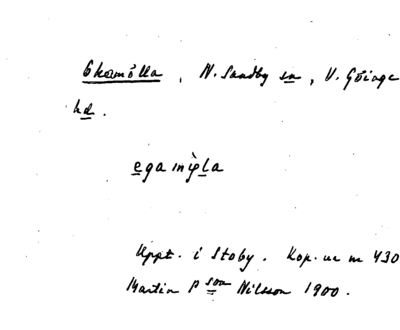 Ekamölla, N. Sandby sn, V. Göinge
hd.
egamı̀̀ļa
Uppt. i Stoby. Kop. ur m 430
Martin P:son Nilsson 1900.